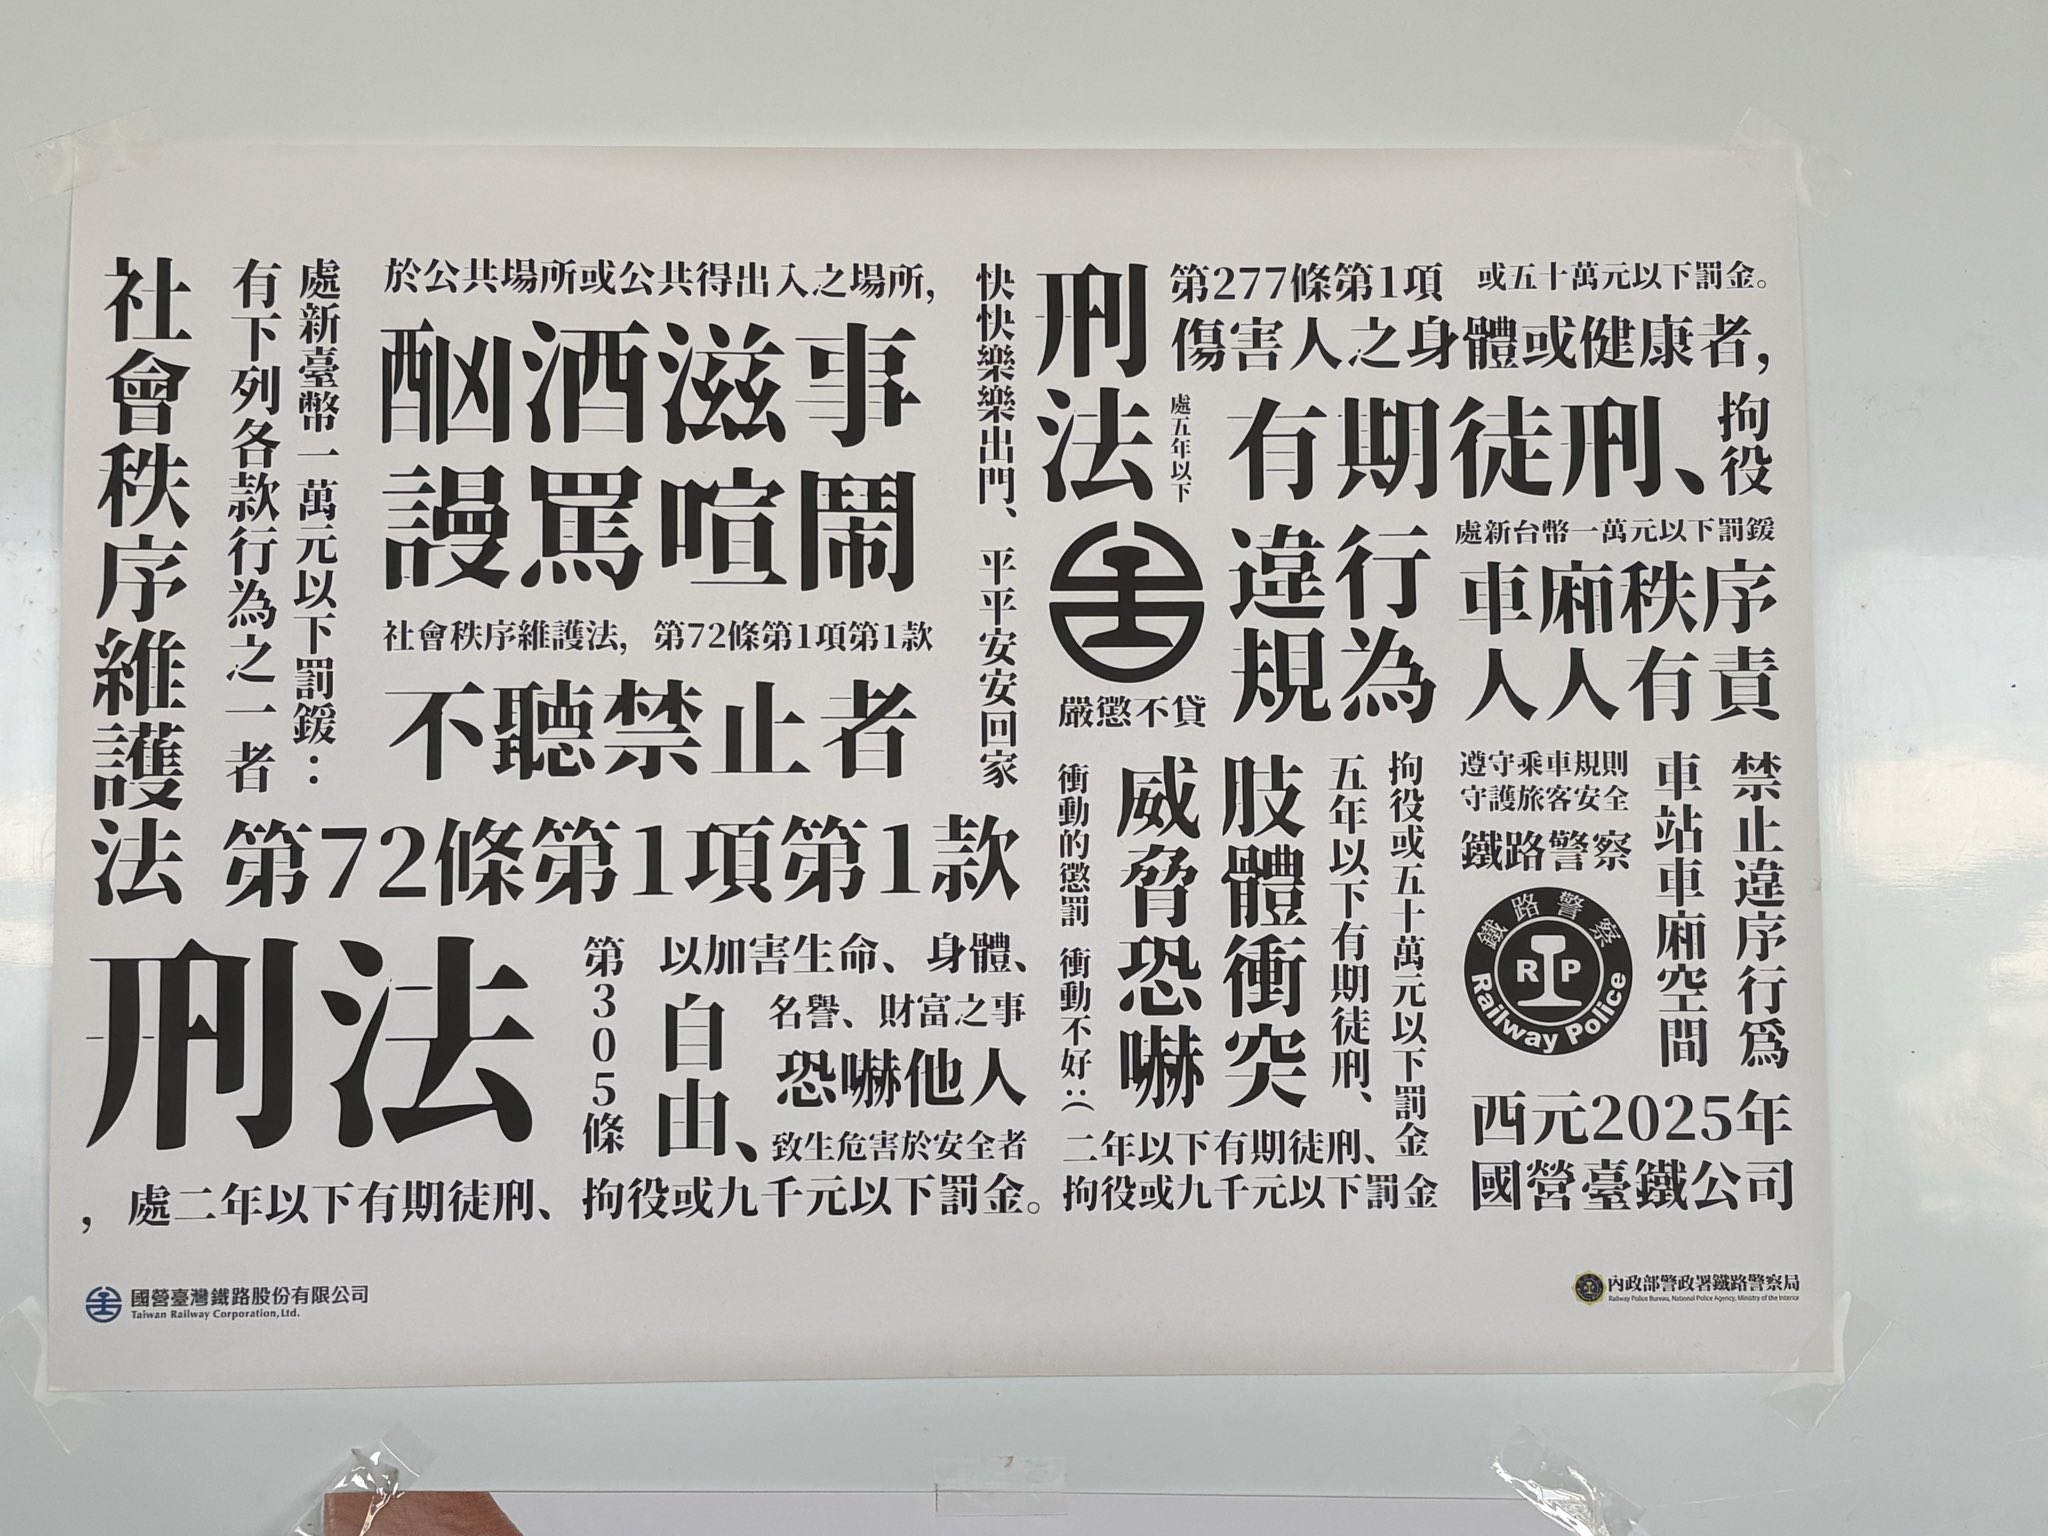 社會秩序維護法
有下列各款行為之一者
處新臺幣一萬元以下罰鍰：
於公共場所或公共得出入之場所，
酗酒滋事
謾罵喧鬧
社會秩序維護法，第72條第1項第1款
不聽禁止者
第72條第1項第1款
快快樂樂出門、平平安安回家
刑法
第305條
以加害生命、身體、
自由、
名譽、財富之事
恐嚇他人
致生危害於安全者
，處二年以下有期徒刑、拘役或九千元以下罰金。
刑法
第277條第1項
傷害人之身體或健康者，
處五年以下
有期徒刑、
拘役
或五十萬元以下罰金。
嚴懲不貸
違規
行為
處新台幣一萬元以下罰鍰
車廂秩序
人人有責
衝動的懲罰 衝動不好:(
威脅恐嚇
肢體衝突
五年以下有期徒刑、
拘役或五十萬元以下罰金
二年以下有期徒刑、
拘役或九千元以下罰金
遵守乘車規則
守護旅客安全
鐵路警察
鐵路警察
RP
Railway Police
車站車廂空間
禁止違序行爲
西元2025年
國營臺鐵公司
國營臺灣鐵路股份有限公司
Taiwan Railway Corporation,Ltd.
內政部警政署鐵路警察局
Railway Police Bureau, National Police Agency, Ministry of the Interior